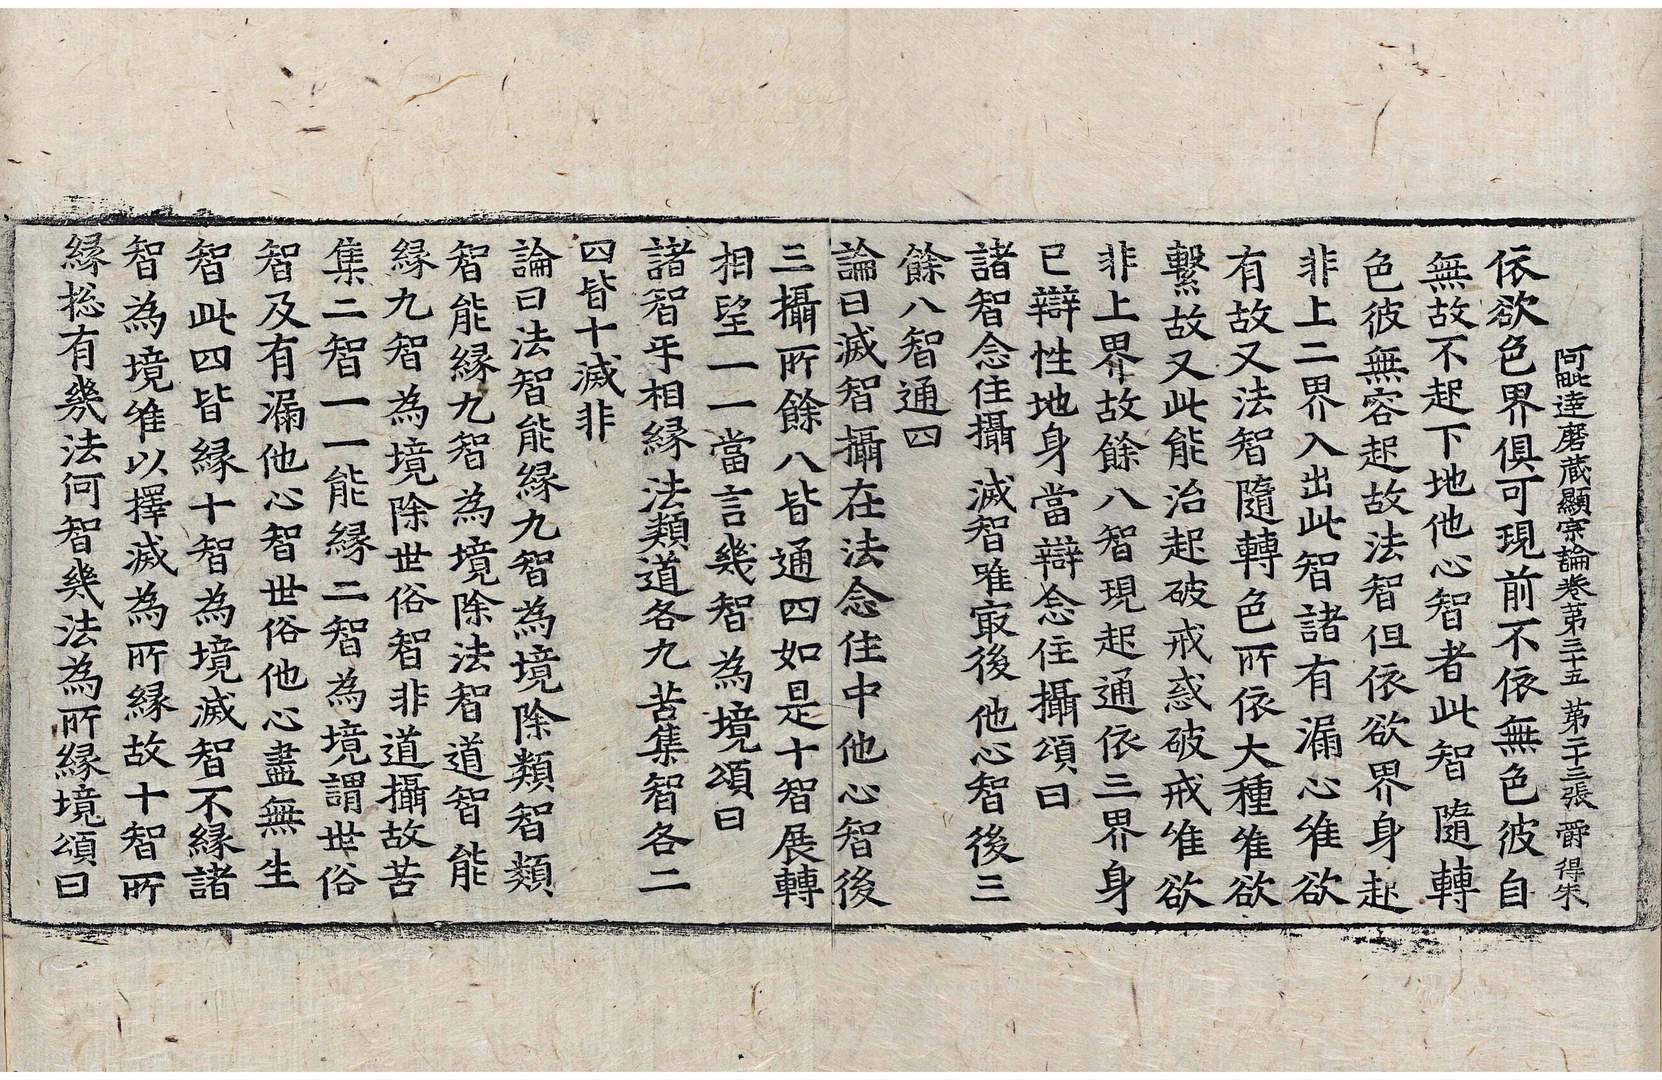 阿毗達磨藏顯宗論卷第三十五 第二十三張 爵 得朱
依欲色界俱可現前不依無色彼自
無故不起下地他心智者此智隨轉
色彼無容起故法智但依欲界身起
非上二界入出此智諸有漏心唯欲
有故又法智隨轉色所依大種唯欲
繫故又此能治起破戒惑破戒唯欲
非上界故餘八智現起通依三界身
已辯性地身當辯念住攝頌曰
諸智念住攝 滅智唯㝡後 他心智後三
餘八智通四
論曰滅智攝在法念住中他心智後
三攝所餘八皆通四如是十智展轉
相望一一當言幾智為境頌曰
諸智互相緣 法類道各九 苦集智各二
四皆十滅非
論曰法智能緣九智為境除類智類
智能緣九智為境除法智道智能
緣九智為境除世俗智非道攝故苦
集二智一一能緣二智為境謂世俗
智及有漏他心智世俗他心盡無生
智此四皆緣十智為境滅智不緣諸
智為境唯以擇滅為所緣故十智所
緣捴有幾法何智幾法為所緣境頌曰